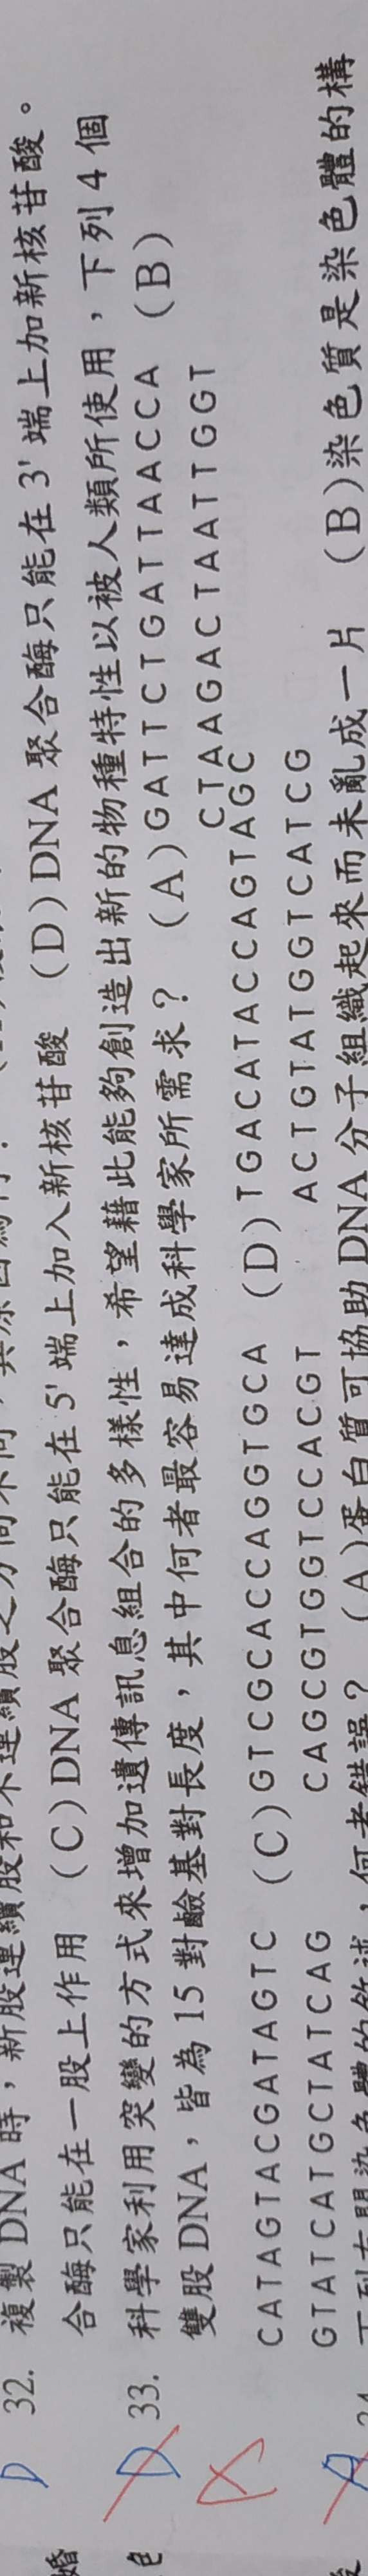 D 32. 複製 DNA 時，新股連續股和不連續股之方向不同，其原因為何？
合酶只能在一股上作用 (C) DNA 聚合酶只能在 5' 端上加入新核苷酸 (D) DNA 聚合酶只能在 3' 端上加新核苷酸。
D 33. 科學家利用突變的方式來增加遺傳訊息組合的多樣性，希望藉此能夠創造出新的物種特性以被人類所使用，下列 4 個
雙股 DNA，皆為 15 對鹼基對長度，其中何者最容易達成科學家所需求？ (A) GATTCTGATTAACCA (B)
CTAAGACTAATTGGT
CATAGTACGATAGTC (C) GTCGCACCAGGTGCA (D) TGACATACCAGTAGC
GTATCATGCTATCAG CAGCGTGGTCCACGT ACTGTATGGTCATCG
下列有關染色體的敘述，何者錯誤？ (A)蛋白質可協助 DNA 分子組織起來而未亂成一片 (B)染色質是染色體的構